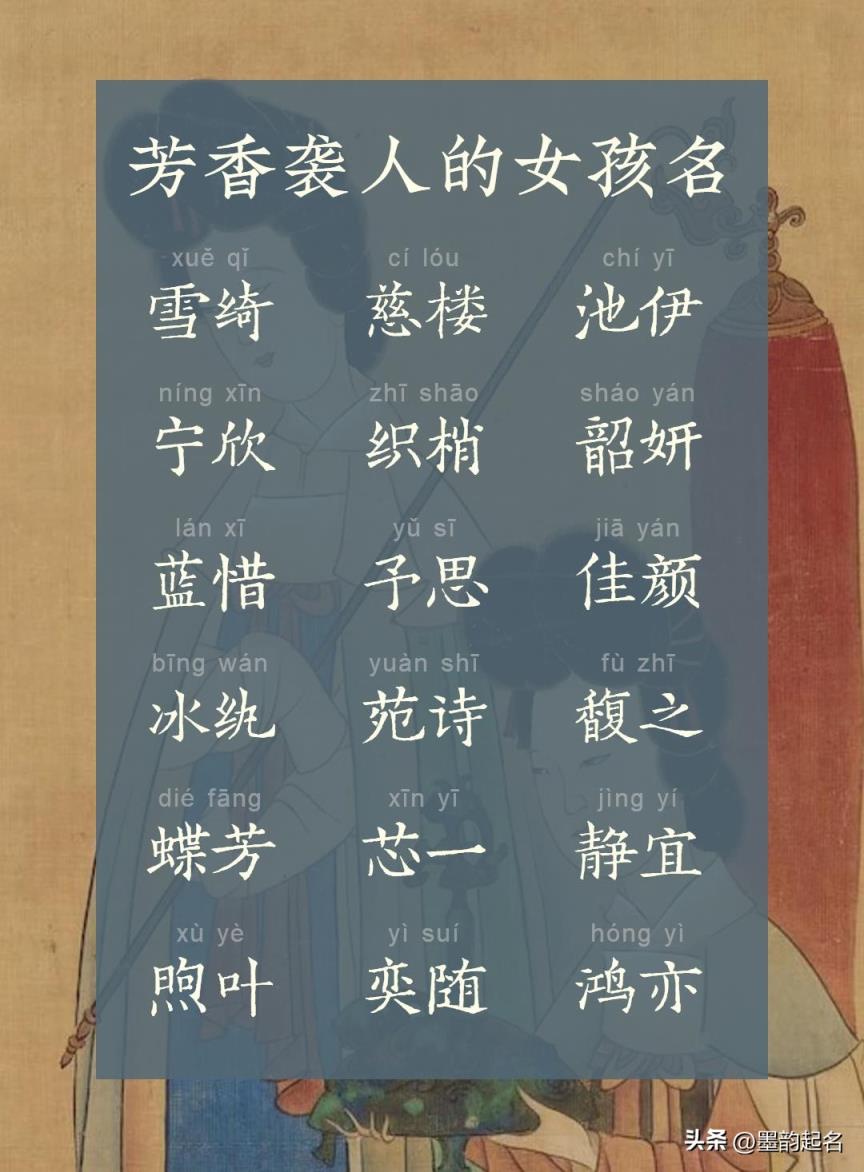 芳香袭人的女孩名
xuě qǐ cí lóu chí yī
雪绮 慈楼 池伊
níng xīn zhī shāo sháo yán
宁欣 织梢 韶妍
lán xī yǔ sī jiā yán
蓝惜 予思 佳颜
bīng wán yuàn shī fù zhī
冰纨 苑诗 馥之
dié fāng xīn yī jìng yí
蝶芳 芯一 静宜
xù yè yì suí hóng yì
煦叶 奕随 鸿亦
头条 @墨韵起名